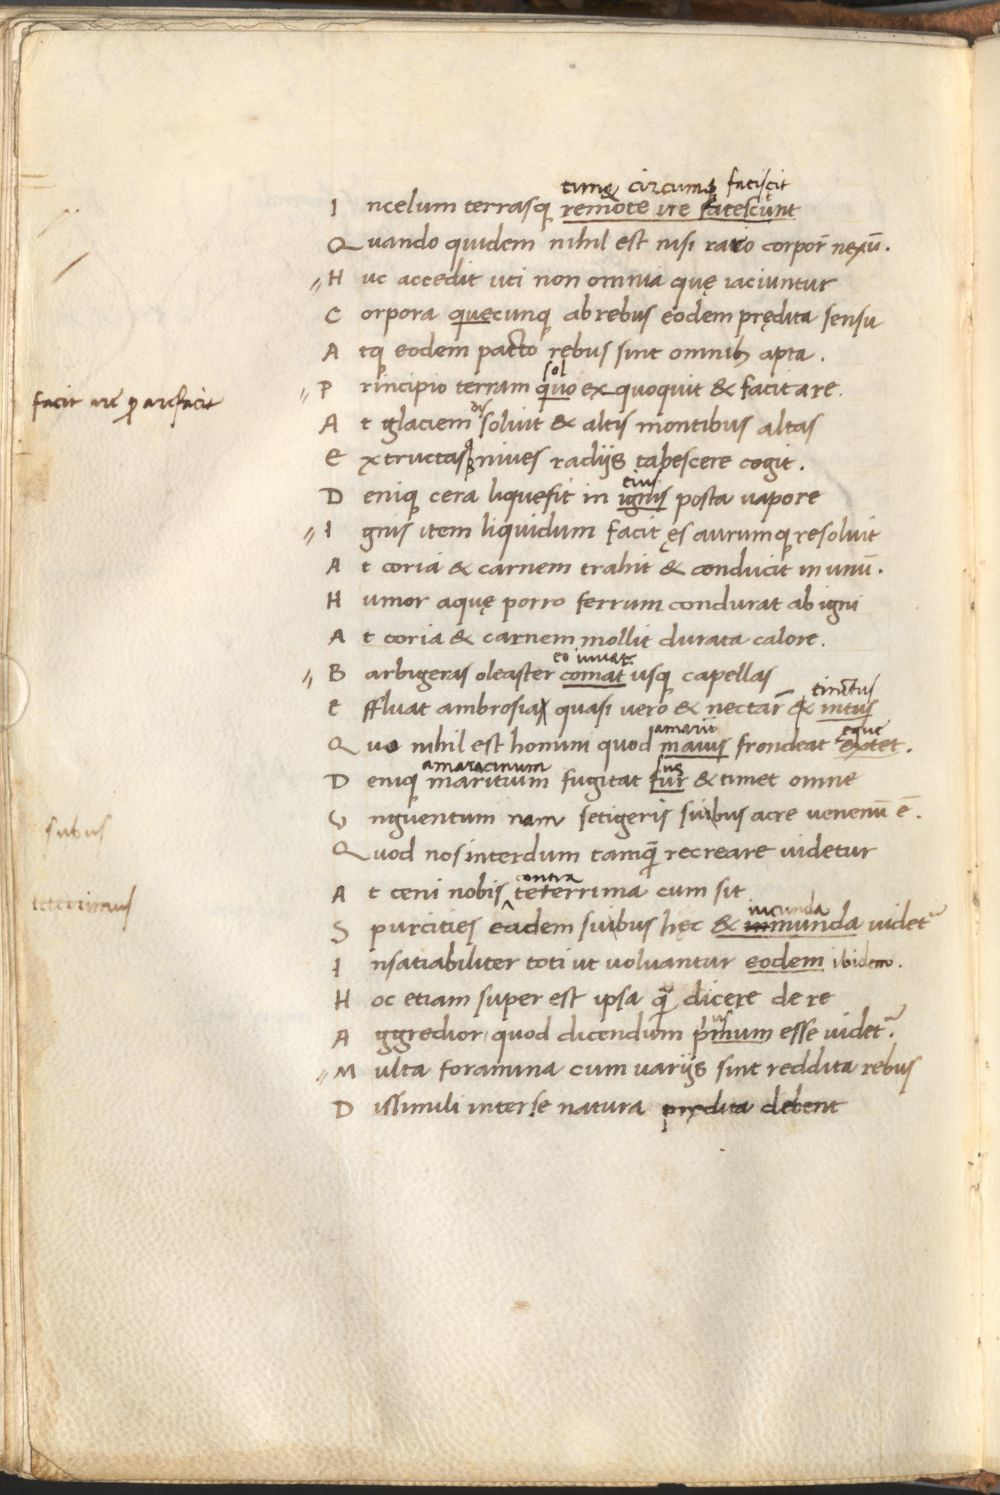 tunq circumq fatiscit
I ncelum terrasq remote ire fatescunt
Q uando quidem nihil est nisi raro corpor̄ nexū.
H uc accedit uti non omnia quę iaciuntur
C orpora quecunq ab rebus eodem prędita sensu
A tq eodem pacto rebus sint omnib; apta.
sol
P rincipio terram quo ex quoquit & facit are.
facit are p arefacit
dis
A t glaciem soluit & altis montibus altas
E xtructasq niues radiis tabescere cogit.
eius
D eniq cera liquefit in ignis posta uapore
I gnis item liquidum facit ęs aurumq resoluit
A t coria & carnem trahit & conducit in unū.
H umor aquę porro ferrum condurat ab igni
A t coria & carnem mollit durata calore.
eo iuuat
B arbigeras oleaster comat usq capellas
tinctus
E ffluat ambrosia quasi uero & nectar̄ & intus
amariu
eque
Q uo nihil est homini quod mauis frondeat extet.
amaracinum
sus
D eniq maritium fugitat fur & timet omne
V nguentum nam setigeris suibus acre uenenū ē.
subus
Q uod nos interdum tamq̄ recreare uidetur
contra
A t ceni nobis teterrima cum sit
teterrimus
iucunda
S purcities eadem suibus hęc & inmunda uidet᷑
I nsatiabiliter toti ut uoluantur eodem ibidem.
H oc etiam super est ipsa q̄ dicere de re
A ggredior quod dicendum primum esse uidet᷑.
M ulta foramina cum uariis sint reddita rebus
D issimili inter se natura prędita debent